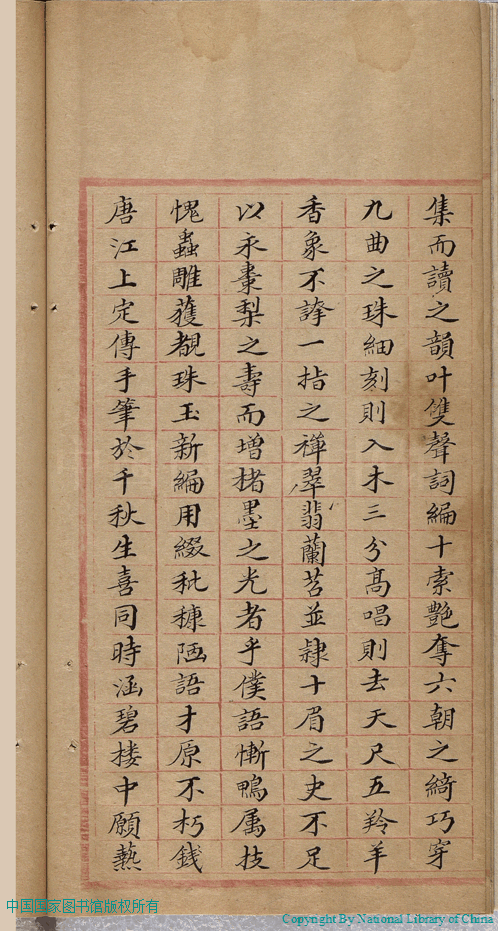 集而讀之韻叶雙聲詞編十索艷奪六朝之綺巧穿
九曲之珠細刻則入木三分髙唱則去天尺五羚羊
香象不誇一指之禪翠翡蘭苕並隷十眉之史不足
以永棗梨之壽而增楮墨之光者乎僕語慚鴨属技
愧蟲雕蒦覩珠玉新編用綴秕糠陋語才原不朽錢
唐江上定傳手筆於千秋生喜同時涵碧楼中願爇
中国国家图书馆版权所有
Copyright By National Library of China